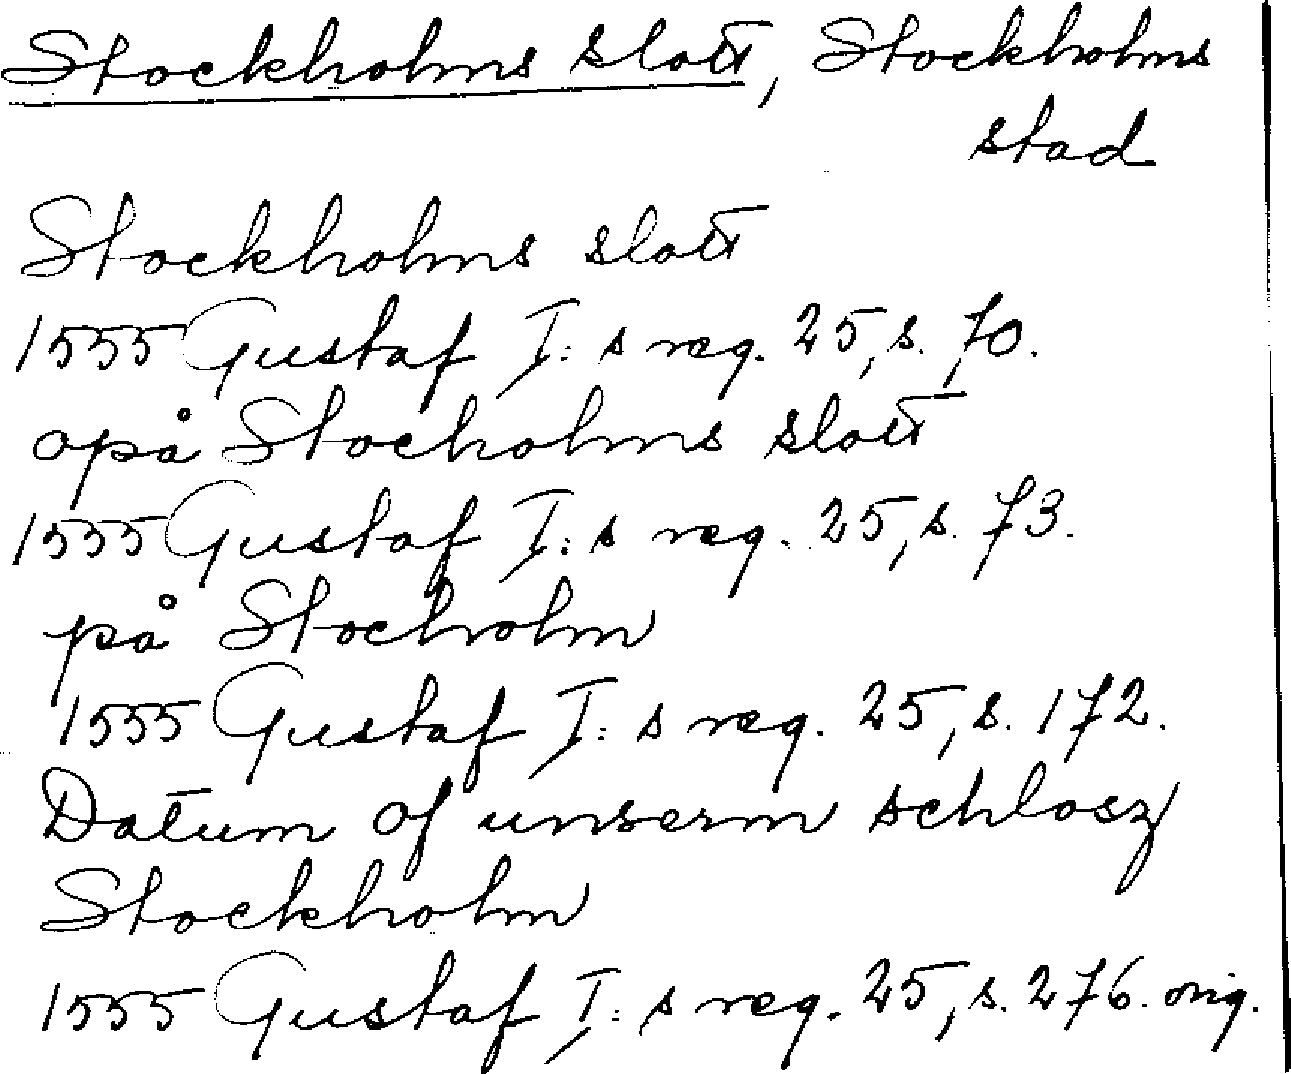 Stockholms slott, Stockholms
stad
Stockholms slott
1555 Gustaf I:s reg. 25, s. 70.
opå Stocholms slott
1555 Gustaf I:s reg. 25, s. 73.
på Stocholm
1555 Gustaf I:s reg. 25, s. 172.
Datum of unserm schlosz
Stockholm
1555 Gustaf I:s reg. 25, s. 276. orig.